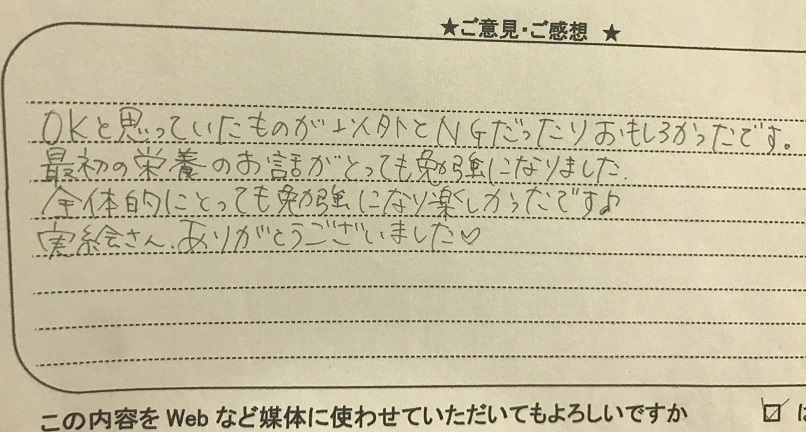 ★ご意見・ご感想 ★
OKと思っていたものが以外とNGだったりおもしろかったです。
最初の栄養のお話がとっても勉強になりました。
全体的にとっても勉強になり楽しかったです♪
実絵さん、ありがとうございました♡
この内容を Web など媒体に使わせていただいてもよろしいですか ☑ は